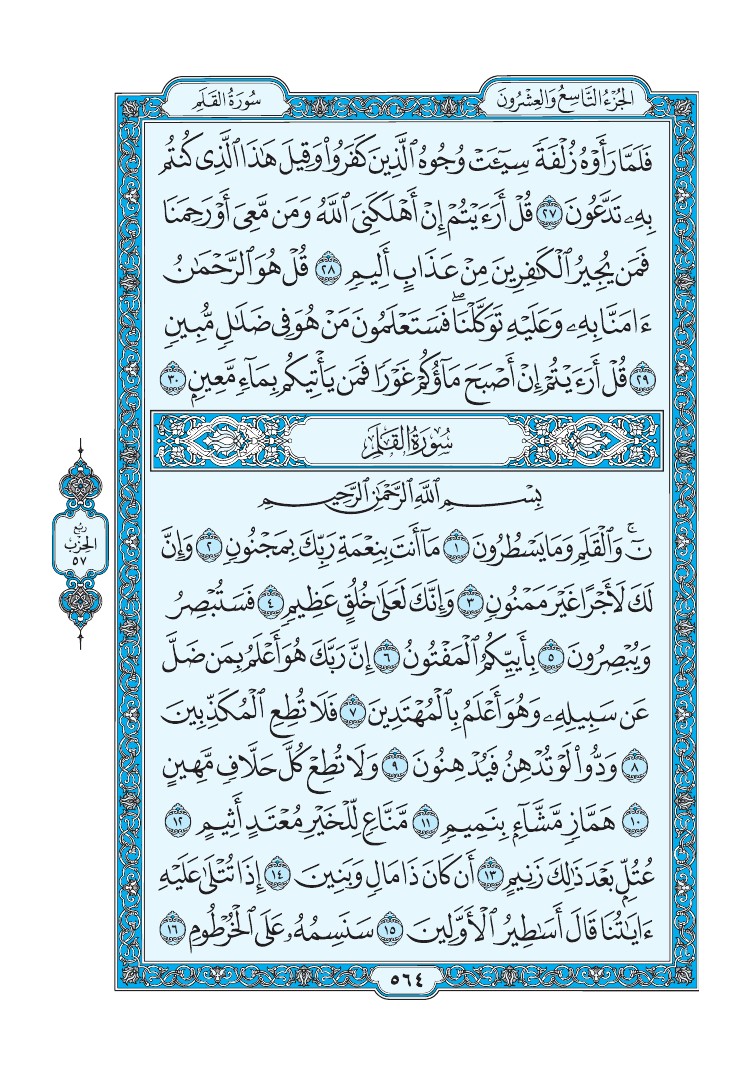 الجُزْءُ التَّاسِعُ وَالعِشْرُونَ
سُورَةُ القَلَمِ
فَلَمَّا رَأَوْهُ زُلْفَةً سِيٓـَٔتْ وُجُوهُ ٱلَّذِينَ كَفَرُوا۟ وَقِيلَ هَـٰذَا ٱلَّذِى كُنتُم
بِهِۦ تَدَّعُونَ ٢٧ قُلْ أَرَءَيْتُمْ إِنْ أَهْلَكَنِىَ ٱللَّهُ وَمَن مَّعِىَ أَوْ رَحِمَنَا
فَمَن يُجِيرُ ٱلْكَـٰفِرِينَ مِنْ عَذَابٍ أَلِيمٍ ٢٨ قُلْ هُوَ ٱلرَّحْمَـٰنُ
ءَامَنَّا بِهِۦ وَعَلَيْهِ تَوَكَّلْنَا ۖ فَسَتَعْلَمُونَ مَنْ هُوَ فِى ضَلَـٰلٍ مُّبِينٍ
٢٩ قُلْ أَرَءَيْتُمْ إِنْ أَصْبَحَ مَآؤُكُمْ غَوْرًا فَمَن يَأْتِيكُم بِمَآءٍ مَّعِينٍۭ ٣٠
سُورَةُ القَلَمِ
بِسْمِ ٱللَّهِ ٱلرَّحْمَـٰنِ ٱلرَّحِيمِ
نٓ ۚ وَٱلْقَلَمِ وَمَا يَسْطُرُونَ ١ مَآ أَنتَ بِنِعْمَةِ رَبِّكَ بِمَجْنُونٍ ٢ وَإِنَّ
لَكَ لَأَجْرًا غَيْرَ مَمْنُونٍ ٣ وَإِنَّكَ لَعَلَىٰ خُلُقٍ عَظِيمٍ ٤ فَسَتُبْصِرُ
وَيُبْصِرُونَ ٥ بِأَييِّكُمُ ٱلْمَفْتُونُ ٦ إِنَّ رَبَّكَ هُوَ أَعْلَمُ بِمَن ضَلَّ
عَن سَبِيلِهِۦ وَهُوَ أَعْلَمُ بِٱلْمُهْتَدِينَ ٧ فَلَا تُطِعِ ٱلْمُكَذِّبِينَ
٨ وَدُّوا۟ لَوْ تُدْهِنُ فَيُدْهِنُونَ ٩ وَلَا تُطِعْ كُلَّ حَلَّافٍ مَّهِينٍ
١٠ هَمَّازٍ مَّشَّآءٍۭ بِنَمِيمٍ ١١ مَّنَّاعٍ لِّلْخَيْرِ مُعْتَدٍ أَثِيمٍ ١٢
عُتُلٍّۭ بَعْدَ ذَٰلِكَ زَنِيمٍ ١٣ أَن كَانَ ذَا مَالٍ وَبَنِينَ ١٤ إِذَا تُتْلَىٰ عَلَيْهِ
ءَايَـٰتُنَا قَالَ أَسَـٰطِيرُ ٱلْأَوَّلِينَ ١٥ سَنَسِمُهُۥ عَلَى ٱلْخُرْطُومِ ١٦
رُبْع
الحِزْبُ
٥٧
٥٦٤